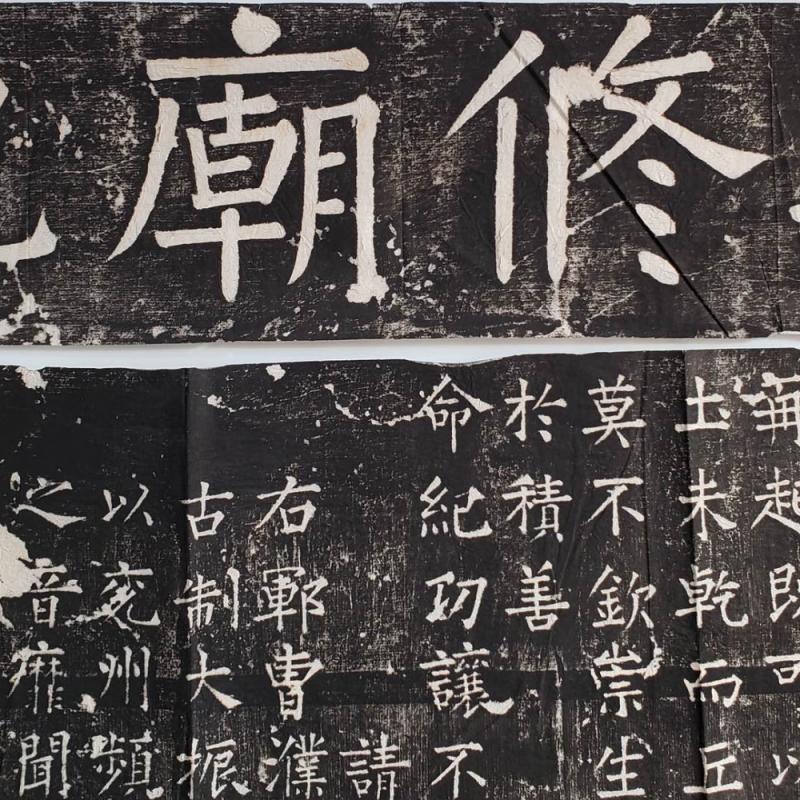 修廟
起既可以
圡未乾而丘
莫不欽崇生
於積善
命紀功讓不
請
右鄆曹濮
古制大振
以兖州頻
之音靡聞